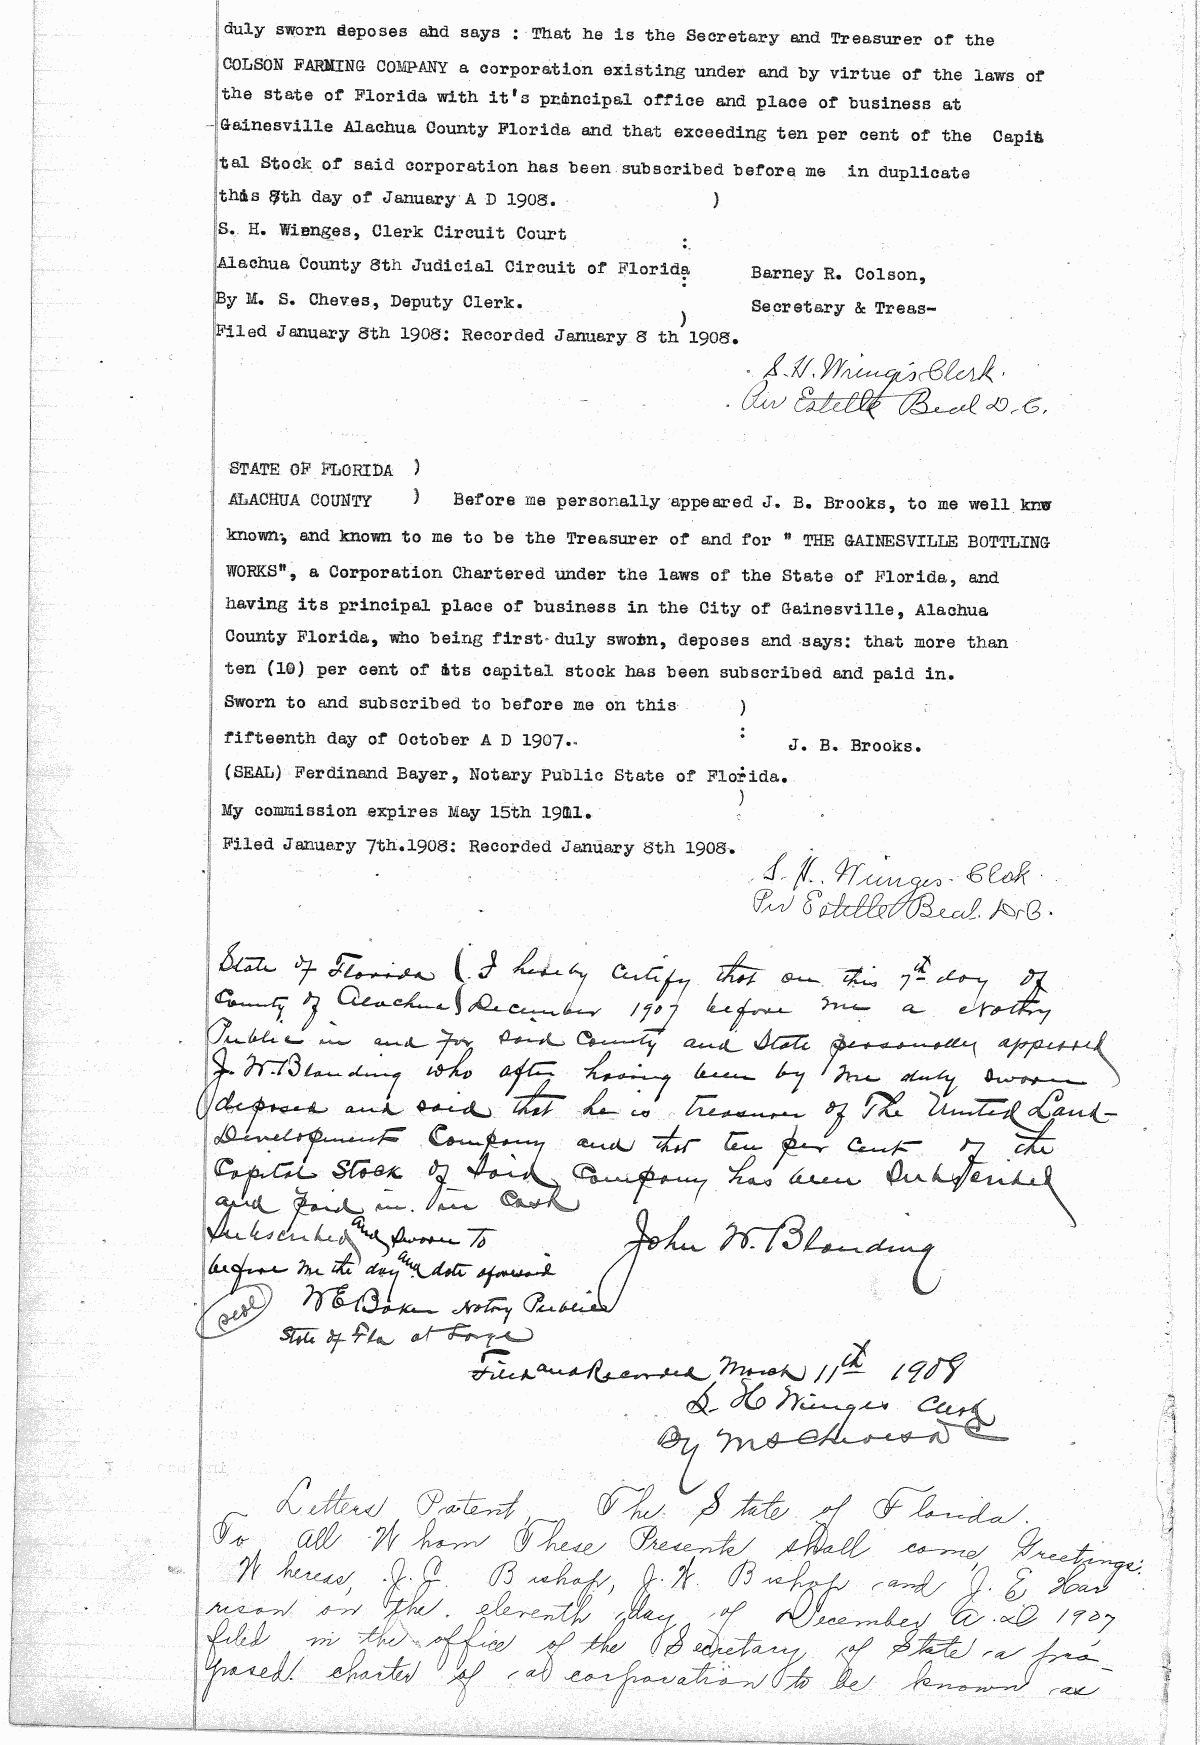 duly sworn deposes ahd says : That he is the Secretary and Treasurer of the
COLSON FARMING COMPANY a corporation existing under and by virtue of the laws of
the state of Florida with it's principal office and place of business at
Gainesville Alachua County Florida and that exceeding ten per cent of the Capit
tal Stock of said corporation has been subscribed before me in duplicate
this 8th day of January A D 1908. )
S. H. Wienges, Clerk Circuit Court :
Alachua County 8th Judicial Circuit of Florida : Barney R. Colson,
By M. S. Cheves, Deputy Clerk. ) Secretary & Treas-
Filed January 8th 1908: Recorded January 8 th 1908.
S. H. Wienges Clerk.
Per Estelle Beal D.C.
STATE OF FLORIDA )
ALACHUA COUNTY ) Before me personally appeared J. B. Brooks, to me well knw
known, and known to me to be the Treasurer of and for " THE GAINESVILLE BOTTLING
WORKS", a Corporation Chartered under the laws of the State of Florida, and
having its principal place of business in the City of Gainesville, Alachua
County Florida, who being first duly sworn, deposes and says: that more than
ten (10) per cent of its capital stock has been subscribed and paid in.
Sworn to and subscribed to before me on this )
fifteenth day of October A D 1907. : J. B. Brooks.
(SEAL) Ferdinand Bayer, Notary Public State of Florida. :
My commission expires May 15th 1911. )
Filed January 7th.1908: Recorded January 8th 1908.
S. H. Wienges Clerk.
Per Estelle Beal. D.C.
State of Florida ( I hereby certify that on this 7th day of
County of Alachua ) December 1907 before me a Notary
Public in and for said County and State personally appeared
J. W. Blanding who after having been by me duly sworn
deposed and said that he is treasurer of The United Land
Development Company and that ten per cent of the
Capital Stock of said Company has been Subscribed
and paid in. in Cash
Subscribed and sworn to John W. Blanding
before me the day and date aforesaid
(seal) W E Baker Notry Public
State of Fla at Large
Filed and Recorded March 11th 1908
S. H Wienges Clerk
By M S Cheves D C
Letters Patent, The State of Florida.
To all Whom These Presents shall come, Greetings:
Whereas, J. G. Bishop, J. W. Bishop and J. E. Har
rison on the eleventh day of December A. D 1907
filed in the office of the Secretary of State a pro-
posed charter of a corporation to be known as